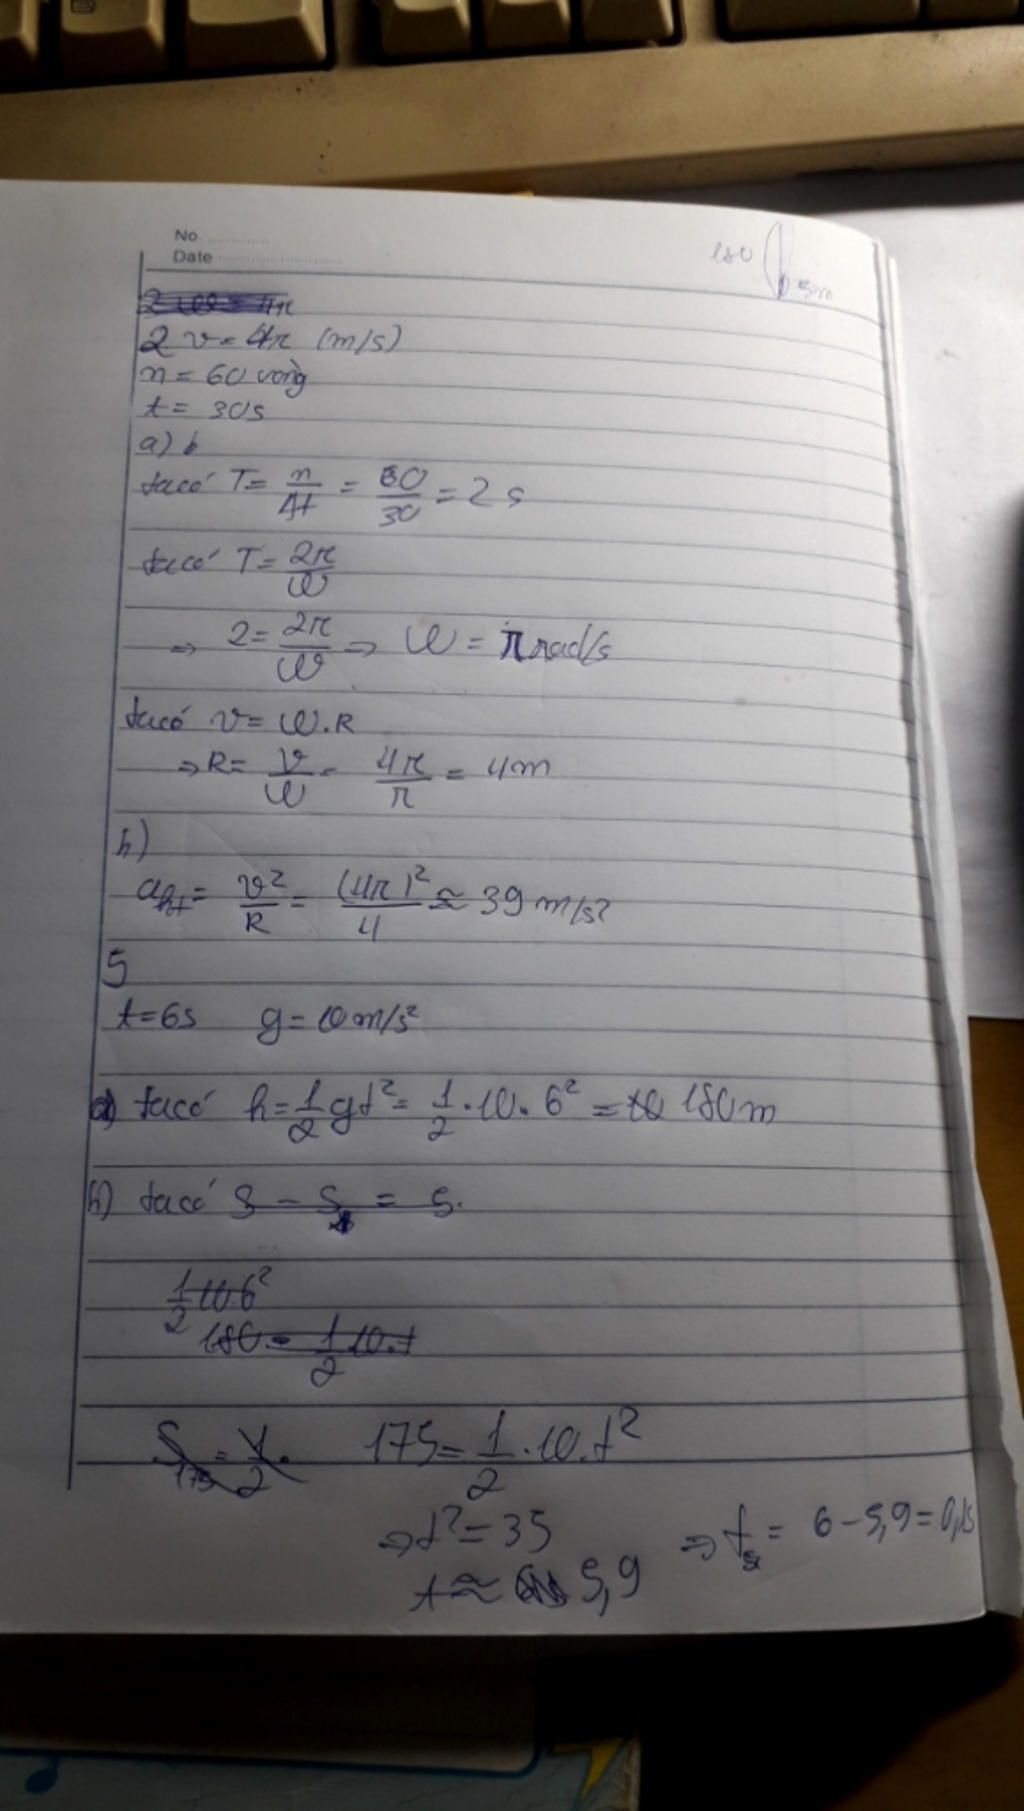 No.
Date
180
5m
2 v = 4π (m/s)
n = 60 vòng
t = 30s
a) b
ta có T = n/Δt = 60/30 = 2 s
ta có T = 2π/ω
⇒ 2 = 2π/ω ⇒ ω = π rad/s
ta có v = ω.R
⇒ R = v/ω = 4π/π = 4m
b)
aht = v²/R = (4π)²/4 ≈ 39 m/s²
5
t = 6s g = 10 m/s²
a) ta có h = 1/2 gt² = 1/2 . 10 . 6² = 180m
b) ta có S - S = 5.
1/2 10.6²
180 = 1/2 10.t
S 175 = 1/2 . 175 = 1/2 . 10 . t²
⇒ t² = 35
t ≈ 5,9
⇒ t5 = 6 - 5,9 = 0,1s